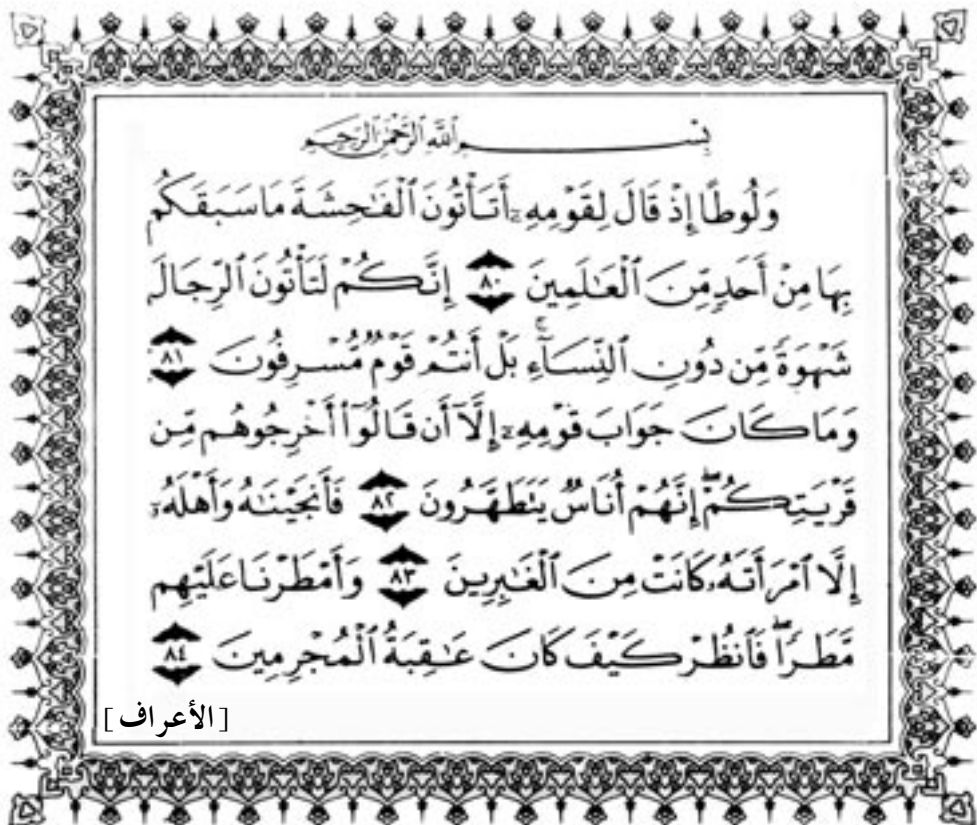 بِسْمِ ٱللَّهِ ٱلرَّحْمَٰنِ ٱلرَّحِيمِ
وَلُوطًا إِذْ قَالَ لِقَوْمِهِۦٓ أَتَأْتُونَ ٱلْفَٰحِشَةَ مَا سَبَقَكُم
بِهَا مِنْ أَحَدٍ مِّنَ ٱلْعَٰلَمِينَ ٨٠ إِنَّكُمْ لَتَأْتُونَ ٱلرِّجَالَ
شَهْوَةً مِّن دُونِ ٱلنِّسَآءِ ۚ بَلْ أَنتُمْ قَوْمٌ مُّسْرِفُونَ ٨١
وَمَا كَانَ جَوَابَ قَوْمِهِۦٓ إِلَّآ أَن قَالُوٓا۟ أَخْرِجُوهُم مِّن
قَرْيَتِكُمْ ۖ إِنَّهُمْ أُنَاسٌ يَتَطَهَّرُونَ ٨٢ فَأَنجَيْنَٰهُ وَأَهْلَهُۥٓ
إِلَّا ٱمْرَأَتَهُۥ كَانَتْ مِنَ ٱلْغَٰبِرِينَ ٨٣ وَأَمْطَرْنَا عَلَيْهِم
مَّطَرًا ۖ فَٱنظُرْ كَيْفَ كَانَ عَٰقِبَةُ ٱلْمُجْرِمِينَ ٨٤
[الأعراف]